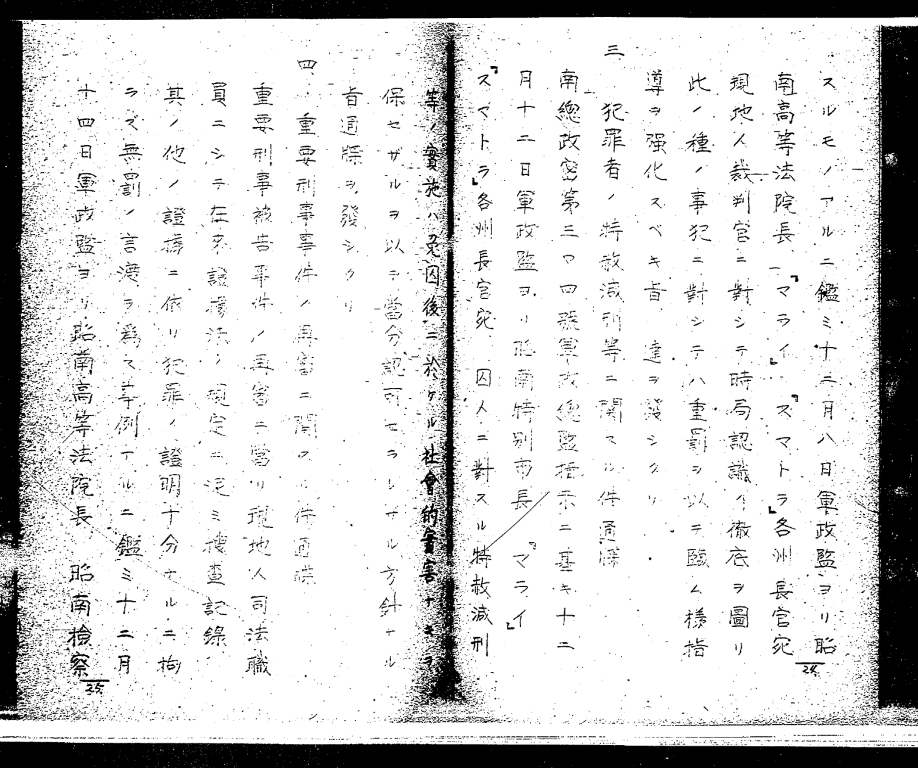 スルモノアルニ鑑ミ十二月八日軍政監ヨリ昭
南高等法院長、『マライ』、『スマトラ』各州長官宛
現地人裁判官ニ對シテ時局認識ノ徹底ヲ圖リ
此ノ種ノ事犯ニ對シテハ重罰ヲ以テ臨ム樣指
導ヲ强化スベキ旨、達ヲ發シタリ.
三 犯罪者ノ特赦減刑等ニ關スル件通牒
南總政密第三〇四號軍政總監指示ニ基キ十二
月十二日軍政監ヨリ昭南特別市長『マライ』
『スマトラ』各州長官宛 囚人ニ對スル特赦減刑
24
等ノ實施ハ免囚後ニ於ケル社會的害ナキヲ
保セザルヲ以テ當分認可セラレザル方針ナル
旨通牒ヲ發シタリ
四、重要刑事事件ノ再審ニ關スル件通牒
重要刑事被告事件ノ再審ニ當リ現地人司法職
員ニシテ在來證據法ノ規定ニ泥ミ搜查記錄
其ノ他ノ證據ニ依リ犯罪ノ證明十分ナルニ拘
ラズ無罰ノ言渡ヲ爲ス事例アルニ鑑ミ十二月
十四日軍政監ヨリ昭南高等法院長 昭南檢察
25